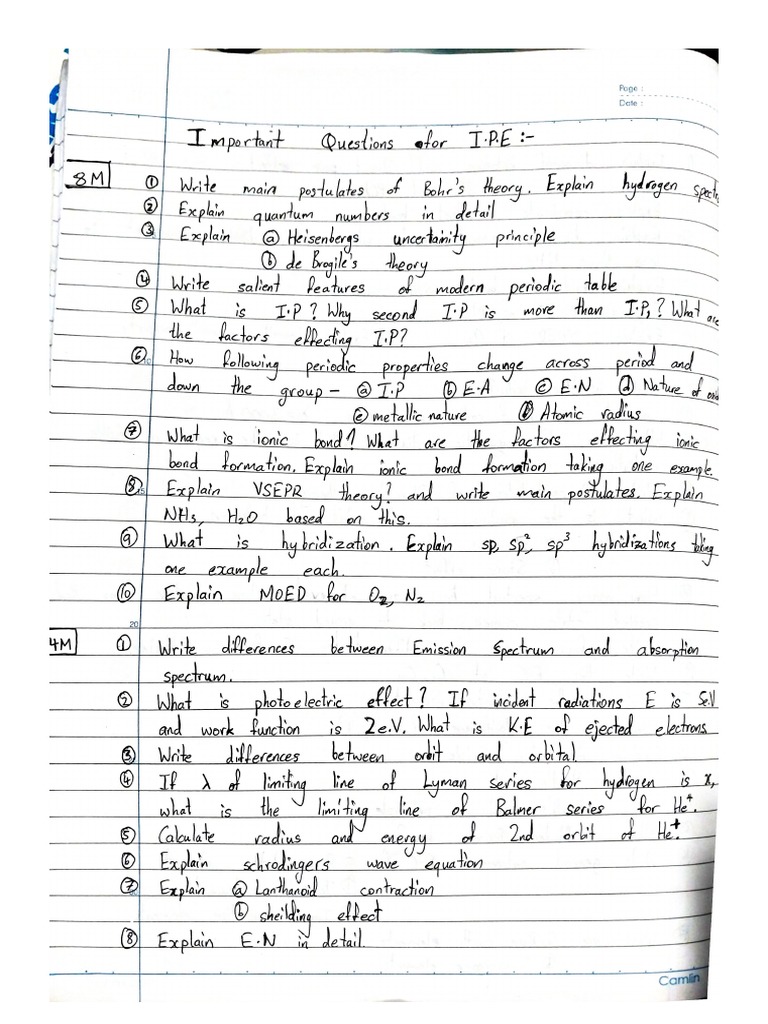 Page :
Date :
Important Questions for I.P.E :-
8M ① Write main postulates of Bohr's theory. Explain hydrogen
② Explain quantum numbers in detail
③ Explain ⓐ Heisenbergs uncertainity principle
ⓑ de Brogile's theory
④ Write salient features of modern periodic table
⑤ What is I.P? Why second I.P is more than I.P₁? What are
the factors effecting I.P?
⑥ How following periodic properties change across period and
down the group - ⓐ I.P ⓑ E.A ⓒ E.N ⓓ Nature of
ⓔ metallic nature ⓕ Atomic radius
⑦ What is ionic bond? What are the factors effecting ionic
bond formation. Explain ionic bond formation taking one example.
⑧ Explain VSEPR theory? and write main postulates. Explain
NH₃, H₂O based on this.
⑨ What is hybridization. Explain sp, sp², sp³ hybridizations taking
one example each.
⑩ Explain MOED for O₂, N₂
20
4M ① Write differences between Emission spectrum and absorption
spectrum.
② What is photoelectric effect? If incident radiations E is
and work function is 2e.V. What is K.E of ejected electrons
③ Write differences between orbit and orbital.
④ If λ of limiting line of Lyman series for hydrogen is x,
what is the limiting line of Balmer series for He⁺.
⑤ Calculate radius and energy of 2nd orbit of He⁺.
⑥ Explain schrodingers wave equation
⑦ Explain ⓐ Lanthanoid contraction
ⓑ sheilding effect
⑧ Explain E.N in detail.
Camlin